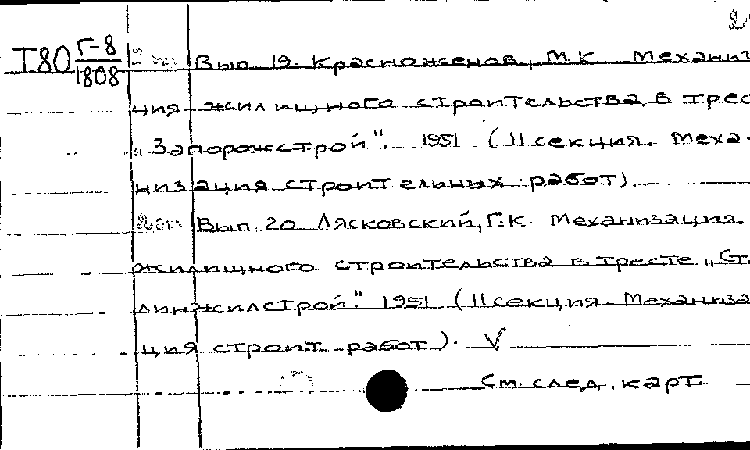 Т80 Г-8/1808
Вып. 19. Красноженов, М.К. Механиз
ция жилищного строительства в трес
"Запорожстрой". 1951 (II секция. Меха-
низация строительных работ)
Вып. 20 Лясковский, Г.К. Механизация.
жилищного строительства в тресте „Ста
линжилстрой". 1951 (II секция. Механиза
ция строит. работ). V
См. след. карт.